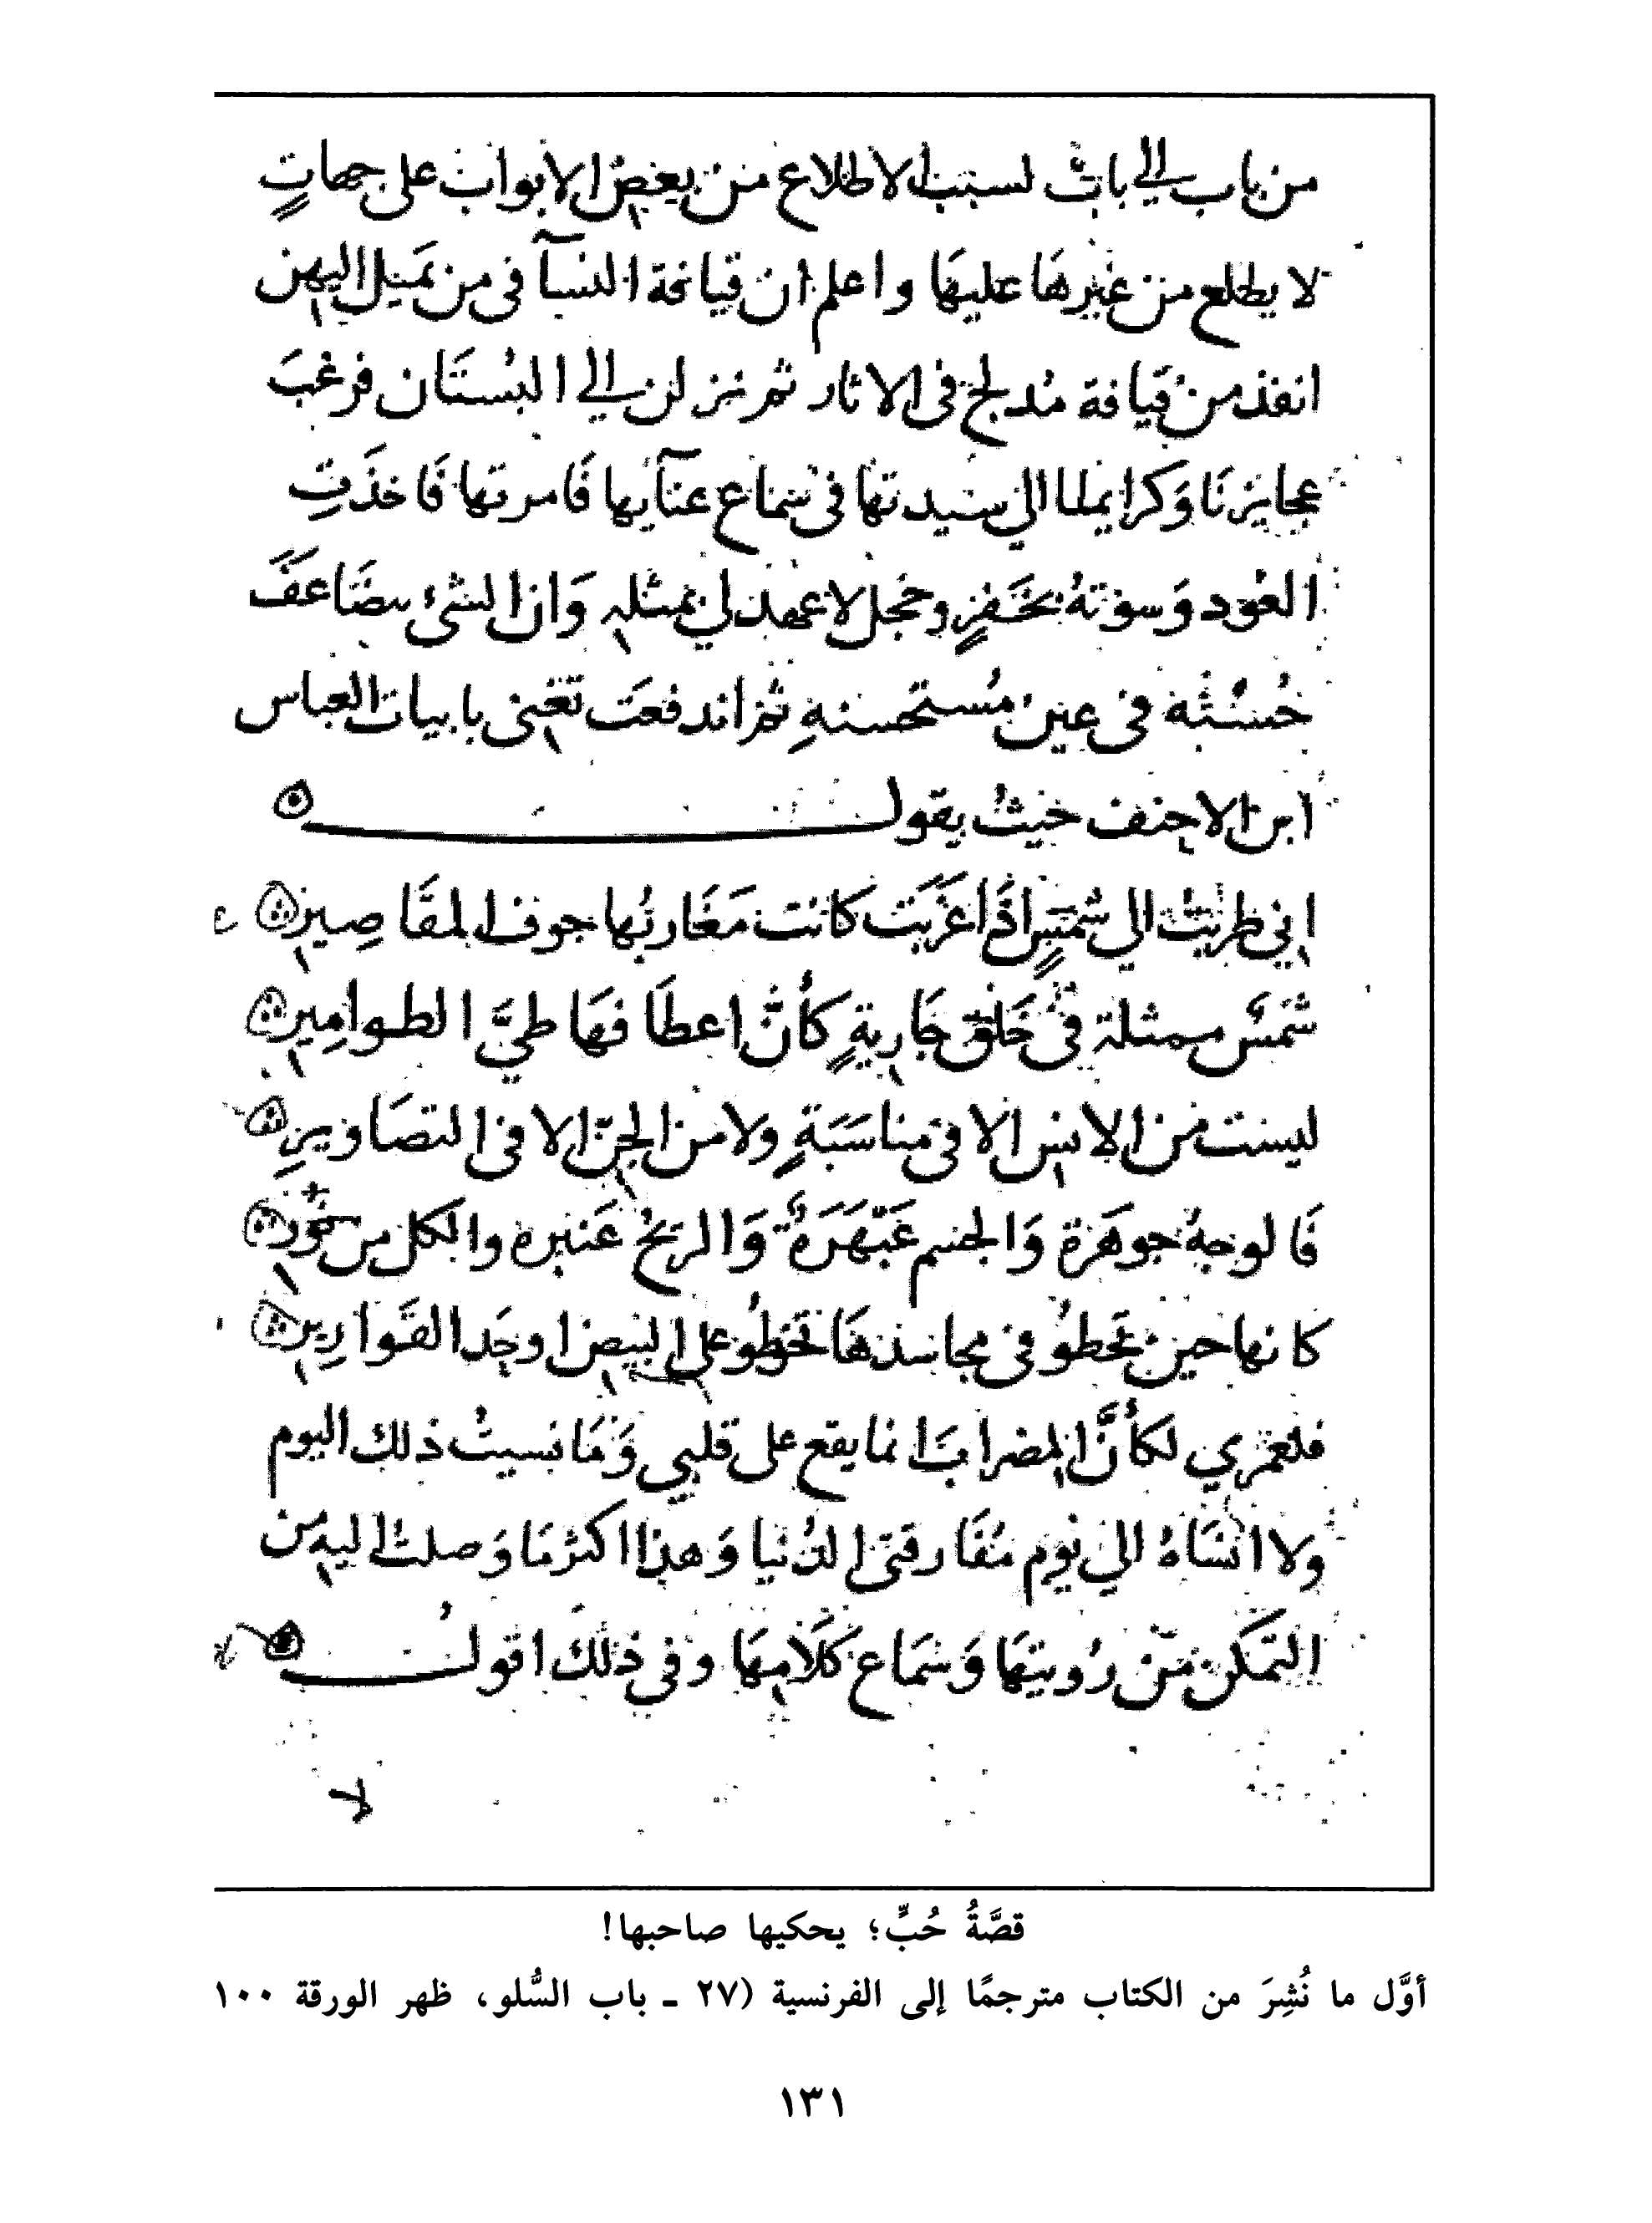 من باب الى باب لسبب الاطلاع من بعض الابواب على جهاتٍ
لا يطلع من غيرها عليها واعلم ان قيافة النسآ في من يميل اليهن
انفذ من قيافة مُدلج في الاثار ثم نزلن الى البُستَان فرغبَ
عجايزنا وكرايمنا الى سيدتها في سماع غنآيها فَامرتها فَاخذَتِ
العُود وَسوتهُ بخَفَرٍ وخجل لا عهد لي بمثله وَان الشيء يتضَاعف
حُسنُه في عين مُستحسنهِ ثم اندفعَت تغنى بابيات العباس
ابن الاحنف حيثُ يقول
اني طربتُ الى شمسٍ اذَا غرَبَت كانت مغَاربُها جوف المقَاصِيرِ
شمسٌ ممثلة في خَلق جَاريةٍ كأنَّ اعطَافهَا طيَّ الطوامِيرِ
ليست من الانس الا في مناسَبَةٍ ولا من الجنّ الا في التصَاويرِ
فَالوجهُ جوهَرة وَالجسم عَبْهَرَةٌ وَالريحُ عَنبره والكل من نُور
كانها حين تخطوُ في مجاسدهَا تخطُو على البيض او حَد القَوارِيرِ
فلعمري لكأنَّ المضرابَ انما يقع على قلبي وَمَا نسيتُ ذلك اليوم
ولا انسَاهُ الى يوم مُفَارقتى الدُنيا وَهذا اكثر مَا وَصلت اليه من
التمكن من رُويتهَا وَسمَاع كَلَامِهَا وفي ذلكَ اقولُ
لا
قصَّةُ حُبٍّ؛ يحكيها صاحبها!
أوَّل ما نُشِرَ من الكتاب مترجمًا إلى الفرنسية (٢٧ ـ باب السُّلو، ظهر الورقة ١٠٠
١٣١